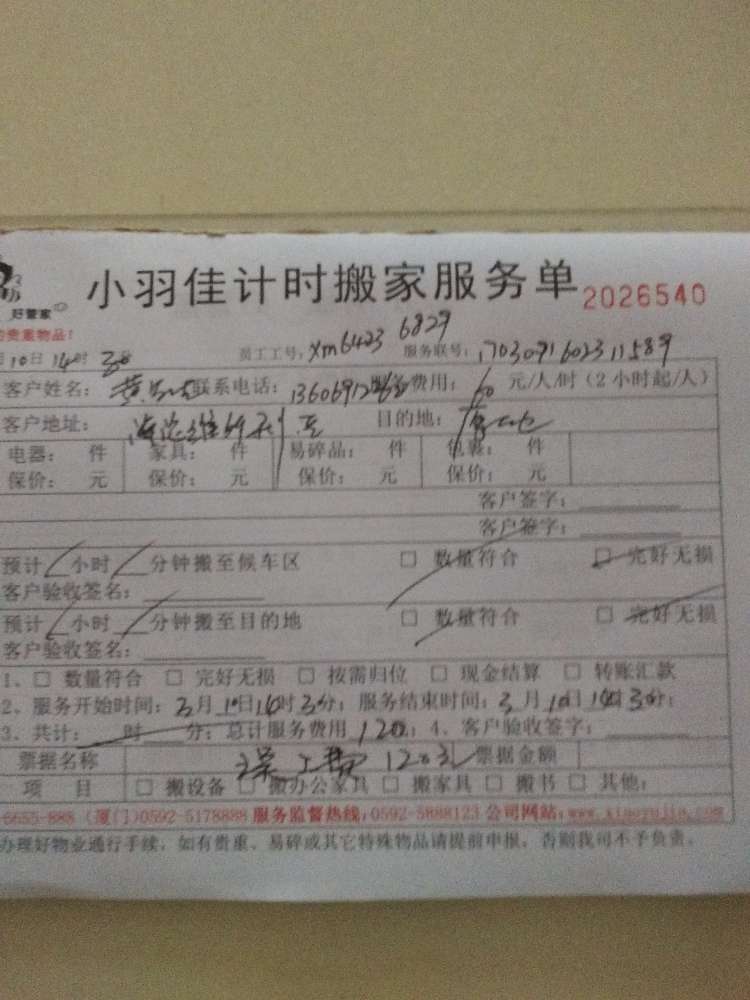 小羽佳计时搬家服务单 2026540
好管家
贵重物品!
月10日14时 员工工号: xm6423 6829 服务联号: 1703091602311589
客户姓名: 黄 联系电话: 费用: 60 元/人/时(2小时起/人)
客户地址: 目的地:
电器: 件 家具: 件 易碎品: 件 包裹: 件
保价: 元 保价: 元 保价: 元 保价: 元
客户签字:
客户签字:
预计 小时 分钟搬至候车区 □ 数量符合 □ 完好无损
客户验收签名:
预计 小时 分钟搬至目的地 □ 数量符合 □ 完好无损
客户验收签名:
1、□ 数量符合 □ 完好无损 □ 按需归位 □ 现金结算 □ 转账汇款
2、服务开始时间: 3月10日14时 分; 服务结束时间: 3月10日 时 分;
3、共计: 时 分; 总计服务费用 120; 4、客户验收签字:
票据名称 工费 120元 票据金额
项 目 □ 搬设备 □ 搬办公家具 □ 搬家具 □ 搬书 □ 其他:
-6655-888 (厦门)0592-5178888 服务监督热线:0592-5888123 公司网站:www.xiaoyujia.com
办理好物业通行手续,如有贵重、易碎或其它特殊物品请提前申报,否则我司不予负责。